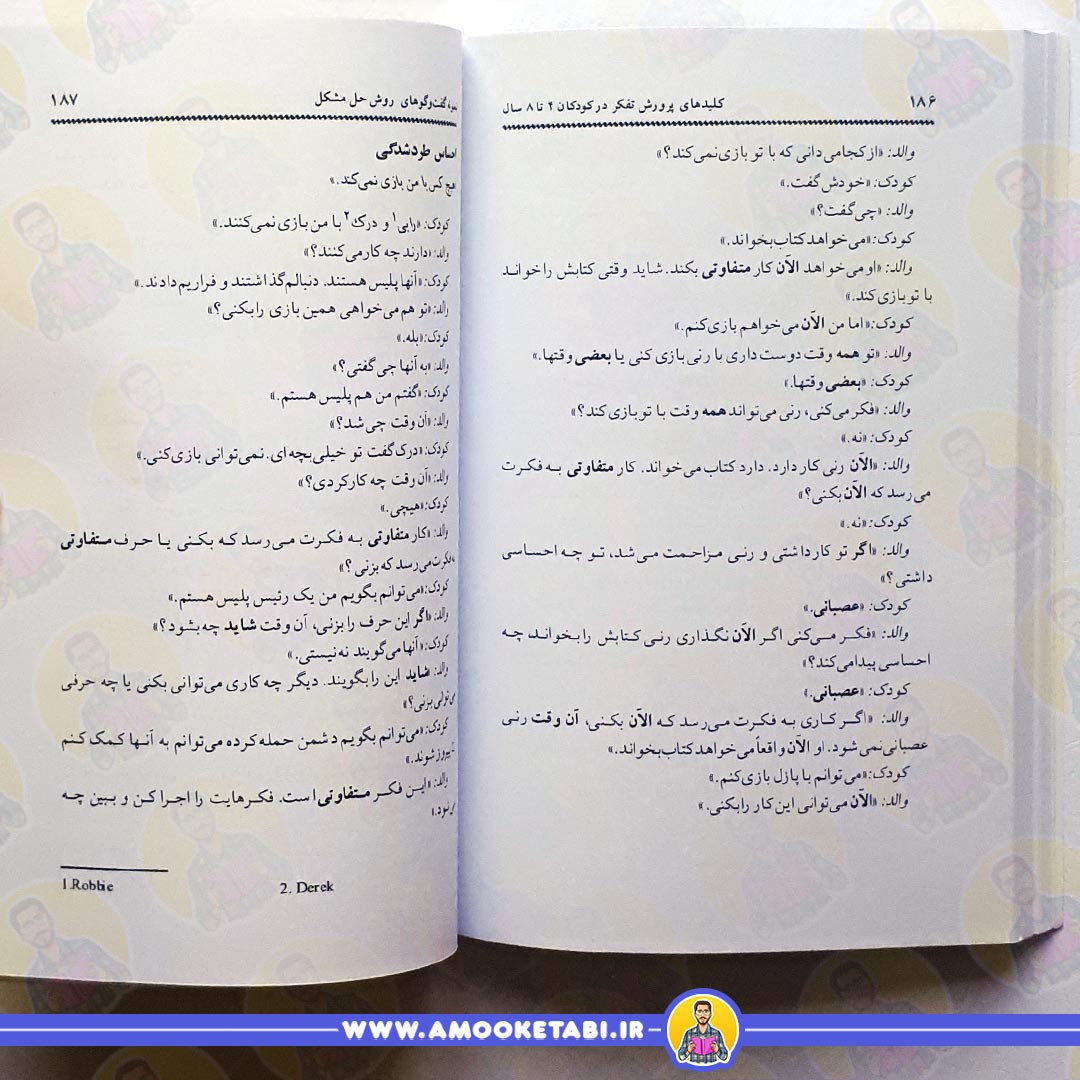 ۱۸۶ کلیدهای پرورش تفکر در کودکان ۴ تا ۸ سال
والد: «از کجا می‌دانی که با تو بازی نمی‌کند؟»
کودک: «خودش گفت.»
والد: «چی گفت؟»
کودک: «می‌خواهد کتاب بخواند.»
والد: «او می‌خواهد الآن کار متفاوتی بکند. شاید وقتی کتابش را خواند
با تو بازی کند.»
کودک: «اما من الآن می‌خواهم بازی کنم.»
والد: «تو همه وقت دوست داری با رنی بازی کنی یا بعضی وقتها.»
کودک: «بعضی وقتها.»
والد: «فکر می‌کنی، رنی می‌تواند همه وقت با تو بازی کند؟»
کودک: «نه.»
والد: «الآن رنی کار دارد. دارد کتاب می‌خواند. کار متفاوتی به فکرت
می‌رسد که الآن بکنی؟»
کودک: «نه.»
والد: «اگر تو کار داشتی و رنی مزاحمت می‌شد، تو چه احساسی
داشتی؟»
کودک: «عصبانی.»
والد: «فکر می‌کنی اگر الآن نگذاری رنی کتابش را بخواند، چه
احساسی پیدا می‌کند؟»
کودک: «عصبانی.»
والد: «اگر کاری به فکرت می‌رسد که الآن بکنی، آن وقت رنی
عصبانی نمی‌شود. او الآن واقعاً می‌خواهد کتاب بخواند.»
کودک: «می‌توانم با پازل بازی کنم.»
والد: «الآن می‌توانی این کار را بکنی.»
گفت‌وگوهای روش حل مشکل ۱۸۷
احساس طردشدگی
«هیچ کس با من بازی نمی‌کند.»
کودک: «رابی۱ و درک۲ با من بازی نمی‌کنند.»
والد: «دارند چه کار می‌کنند؟»
کودک: «آنها پلیس هستند. دنبالم گذاشتند و فراریم دادند.»
والد: «تو هم می‌خواهی همین بازی را بکنی؟»
کودک: «بله.»
والد: «به آنها چی گفتی؟»
کودک: «گفتم من هم پلیس هستم.»
والد: «آن وقت چی شد؟»
کودک: «درک گفت تو خیلی بچه‌ای. نمی‌توانی بازی کنی.»
والد: «آن وقت چه کار کردی؟»
کودک: «هیچی.»
والد: «کار متفاوتی به فکرت می‌رسد که بکنی یا حرف متفاوتی
به فکرت می‌رسد که بزنی؟»
کودک: «می‌توانم بگویم من یک رئیس پلیس هستم.»
والد: «اگر این حرف را بزنی، آن وقت شاید چه بشود؟»
کودک: «آنها می‌گویند نه نیستی.»
والد: «شاید این را بگویند. دیگر چه کاری می‌توانی بکنی یا چه حرفی
می‌توانی بزنی؟»
کودک: «می‌توانم بگویم دشمن حمله کرده می‌توانم به آنها کمک کنم
پیروز شوند.»
والد: «این فکر متفاوتی است. فکرهایت را اجرا کن و ببین چه
می‌شود.»
1.Robbie 2. Derek
WWW.AMOOKETABI.IR